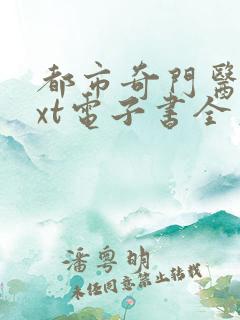 都市奇門醫
xt電子書全
潘粵明
未经同意禁止转载